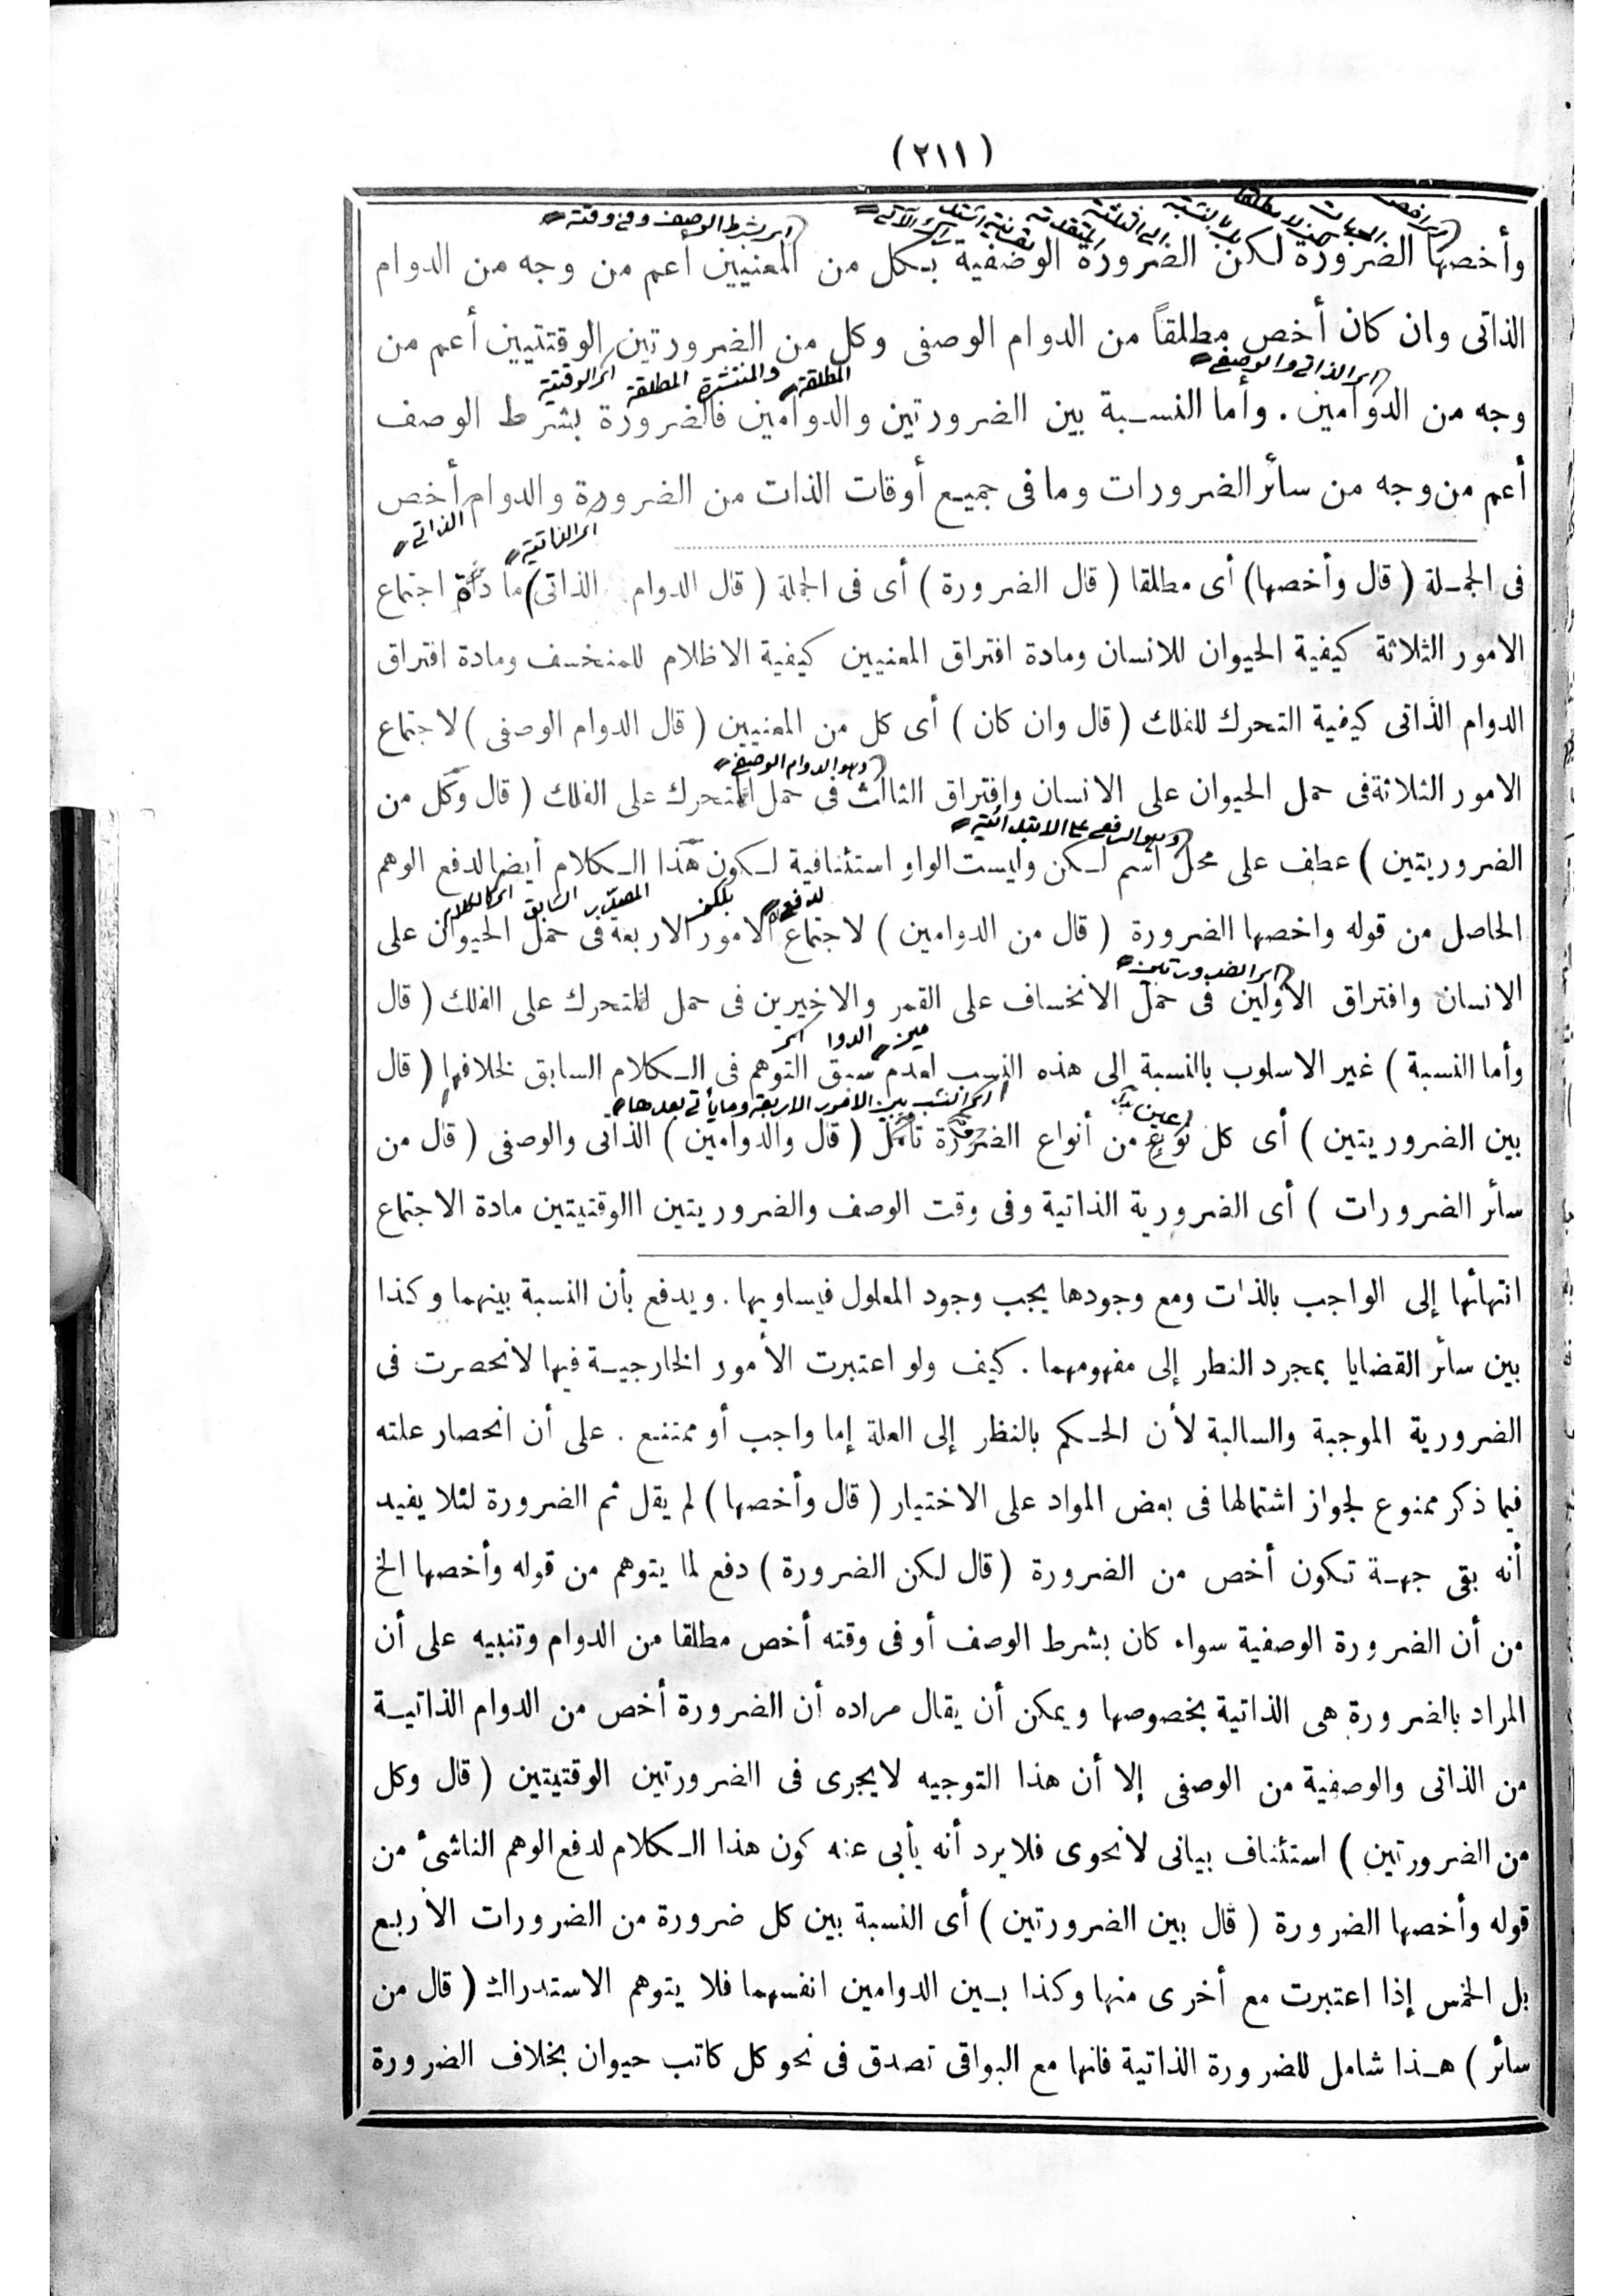 (٢١١)
(اى بشرط الوصف وفى وقته
وأخصها الضرورة لكن الضرورة الوضفية بكل من المعنيين أعم من وجه من الدوام
الذاتى وان كان أخص مطلقاً من الدوام الوصفى وكل من الضرورتين الوقتتيين أعم من
(اى الذاتى والوصفى
اى الوقتية المطلقة والمنتشرة المطلقة
وجه من الدوامين . وأما النسبة بين الضرورتين والدوامين فالضرورة بشرط الوصف
أعم من وجه من سائر الضرورات وما فى جميع أوقات الذات من الضرورة والدوام أخص
اى الذاتية
الذاتى
فى الجملة ( قال وأخصها) أى مطلقا ( قال الضرورة ) أى فى الجملة ( قال الدوام الذاتى) مادة اجتماع
الامور الثلاثة كيفية الحيوان للانسان ومادة افتراق المعنيين كيفية الاظلام للمنخسف ومادة افتراق
الدوام الذاتى كيفية التحرك للفلك ( قال وان كان ) أى كل من المعنيين ( قال الدوام الوصفى ) لاجتماع
(وهو الدوام الوصفى
الامور الثلاثة فى حمل الحيوان على الانسان وافتراق الثالث فى حمل المتحرك على الفلك ( قال وكل من
(وهو الرفع على الابتدائية
الضروريتين ) عطف على محل اسم لكن وليست الواو استئنافية لكون هذا الكلام أيضا لدفع الوهم
الحاصل من قوله واخصها الضرورة ( قال من الدوامين ) لاجتماع الامور الاربعة فى حمل الحيوان على
(اى الضرورتين
الانسان وافتراق الأولين فى حمل الانخساف على القمر والاخيرين فى حمل المتحرك على الفلك ( قال
وأما النسبة ) غير الاسلوب بالنسبة إلى هذه النسب لعدم سبق التوهم فى الكلام السابق لخلافها ( قال
اى النسب بين الامور الاربعة وما يأتى بعدها
بين الضروريتين ) أى كل نوع من أنواع الضرورة تأمل ( قال والدوامين ) الذاتى والوصفى ( قال من
سائر الضرورات ) أى الضرورية الذاتية وفى وقت الوصف والضروريتين االوقتيتين مادة الاجتماع
انتهائها إلى الواجب بالذات ومع وجودها يجب وجود المعلول فيساويها . ويدفع بأن النسبة بينهما وكذا
بين سائر القضايا بمجرد النطر إلى مفهومهما . كيف ولو اعتبرت الأمور الخارجية فيها لانحصرت فى
الضرورية الموجبة والسالبة لأن الحكم بالنظر إلى العلة إما واجب أو ممتنع . على أن انحصار علته
فيما ذكر ممنوع لجواز اشتمالها فى بعض المواد على الاختيار ( قال وأخصها ) لم يقل ثم الضرورة لئلا يفيد
أنه بقى جهة تكون أخص من الضرورة ( قال لكن الضرورة ) دفع لما يتوهم من قوله وأخصها الخ
من أن الضرورة الوصفية سواء كان بشرط الوصف أو فى وقته أخص مطلقا من الدوام وتنبيه على أن
المراد بالضرورة هى الذاتية بخصوصها ويمكن أن يقال مراده أن الضرورة أخص من الدوام الذاتية
من الذاتى والوصفية من الوصفى إلا أن هذا التوجيه لايجرى فى الضرورتين الوقتيتين ( قال وكل
من الضرورتين ) استئناف بيانى لانحوى فلايرد أنه يأبى عنه كون هذا الكلام لدفع الوهم الناشئ من
قوله وأخصها الضرورة ( قال بين الضرورتين ) أى النسبة بين كل ضرورة من الضرورات الأربع
بل الخمس إذا اعتبرت مع أخرى منها وكذا بين الدوامين انفسهما فلا يتوهم الاستدراك ( قال من
سائر ) هذا شامل للضرورة الذاتية فانها مع البواقى تصدق فى نحو كل كاتب حيوان بخلاف الضرورة